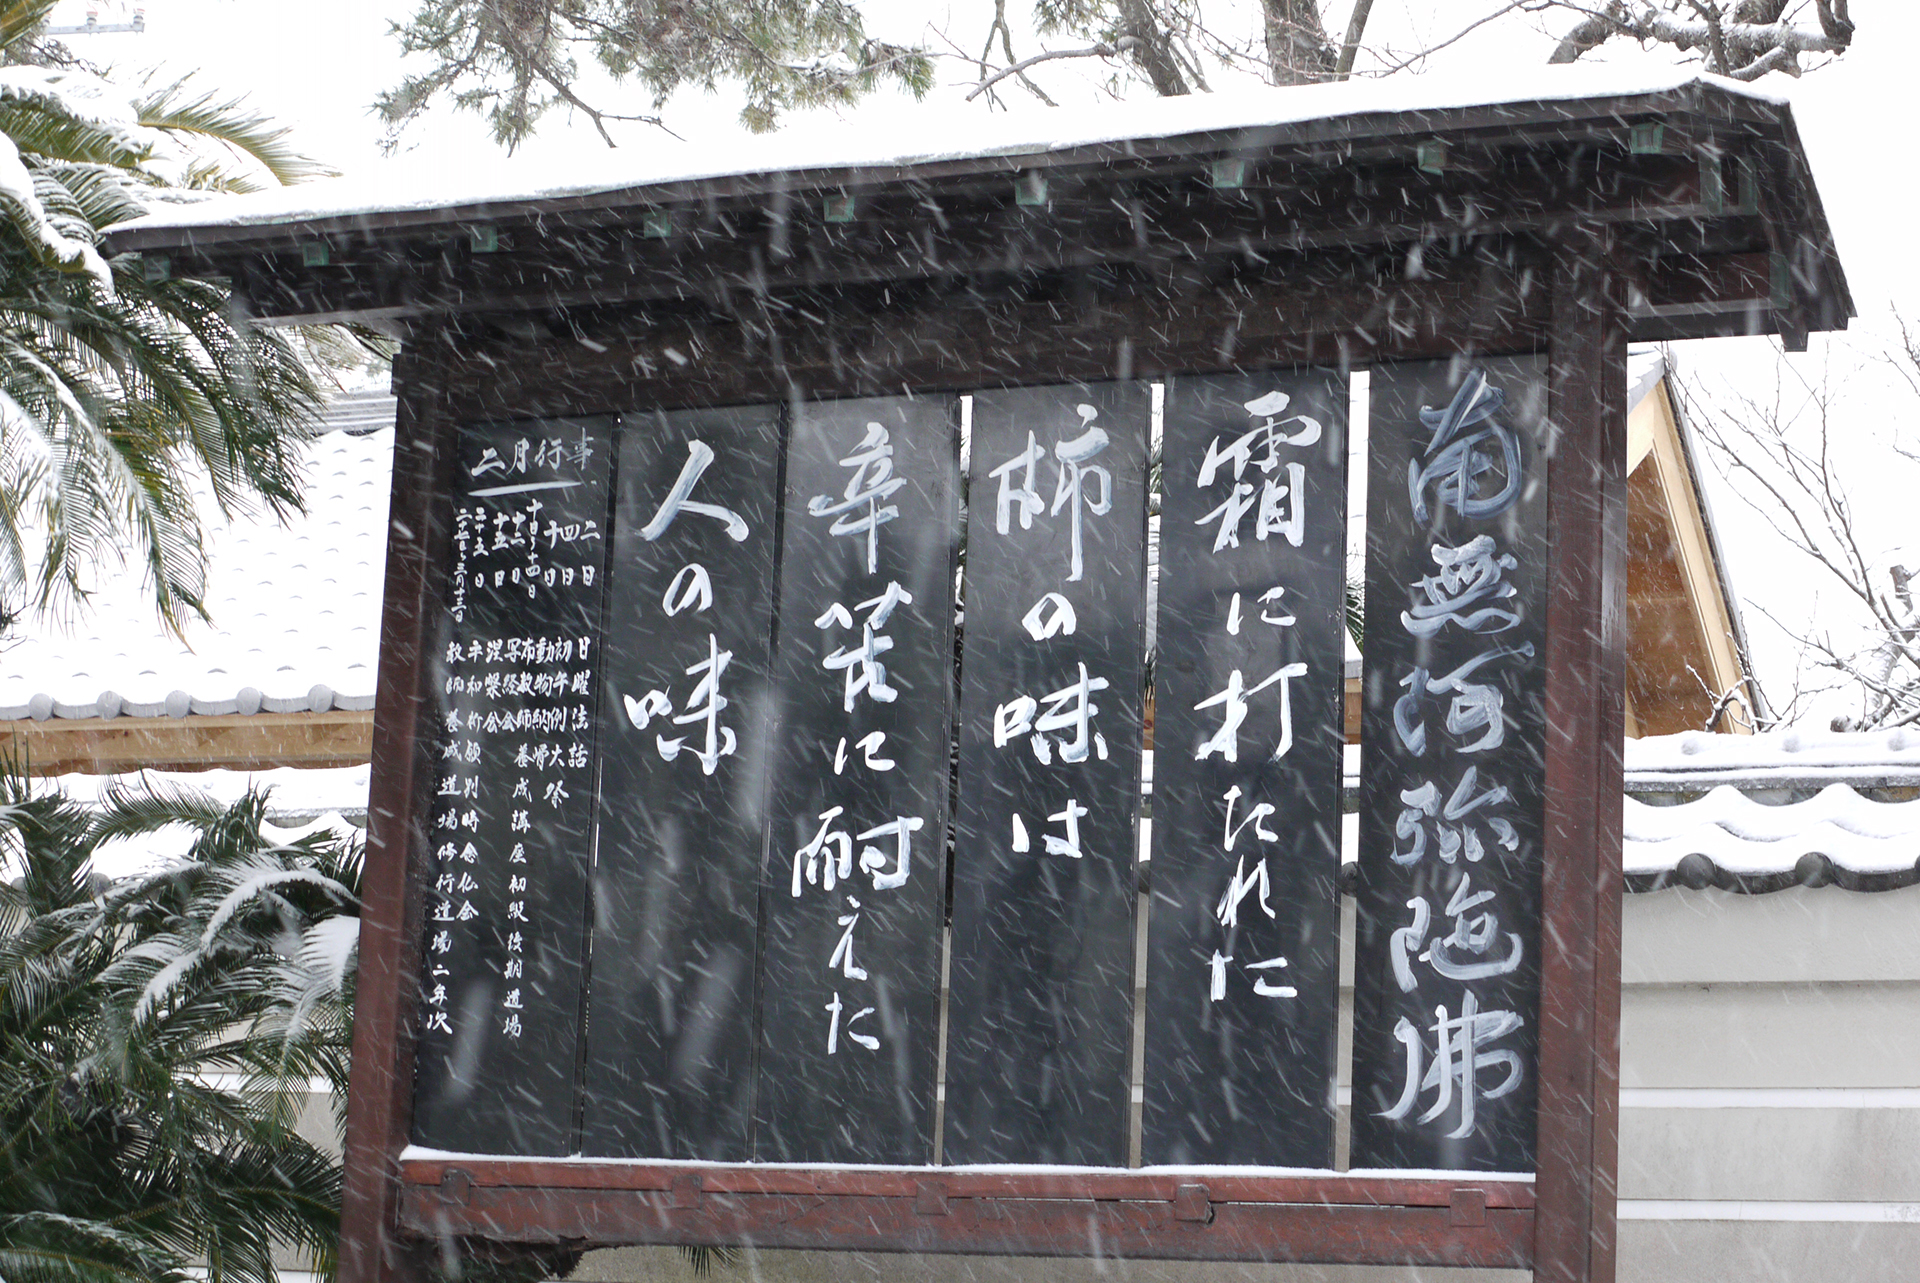 南無阿弥陀佛
霜に打たれた
柿の味は
辛苦に耐えた
人の味
二月行事
二日 日曜法話
四日 初午例大祭
十日 動物納骨
十日〜十四日 布教師養成講座初級後期道場
写経会
十五日 涅槃会
二十五日 平和祈願別時念仏会
二十七日〜三月十三日 教師養成道場修行道場二年次